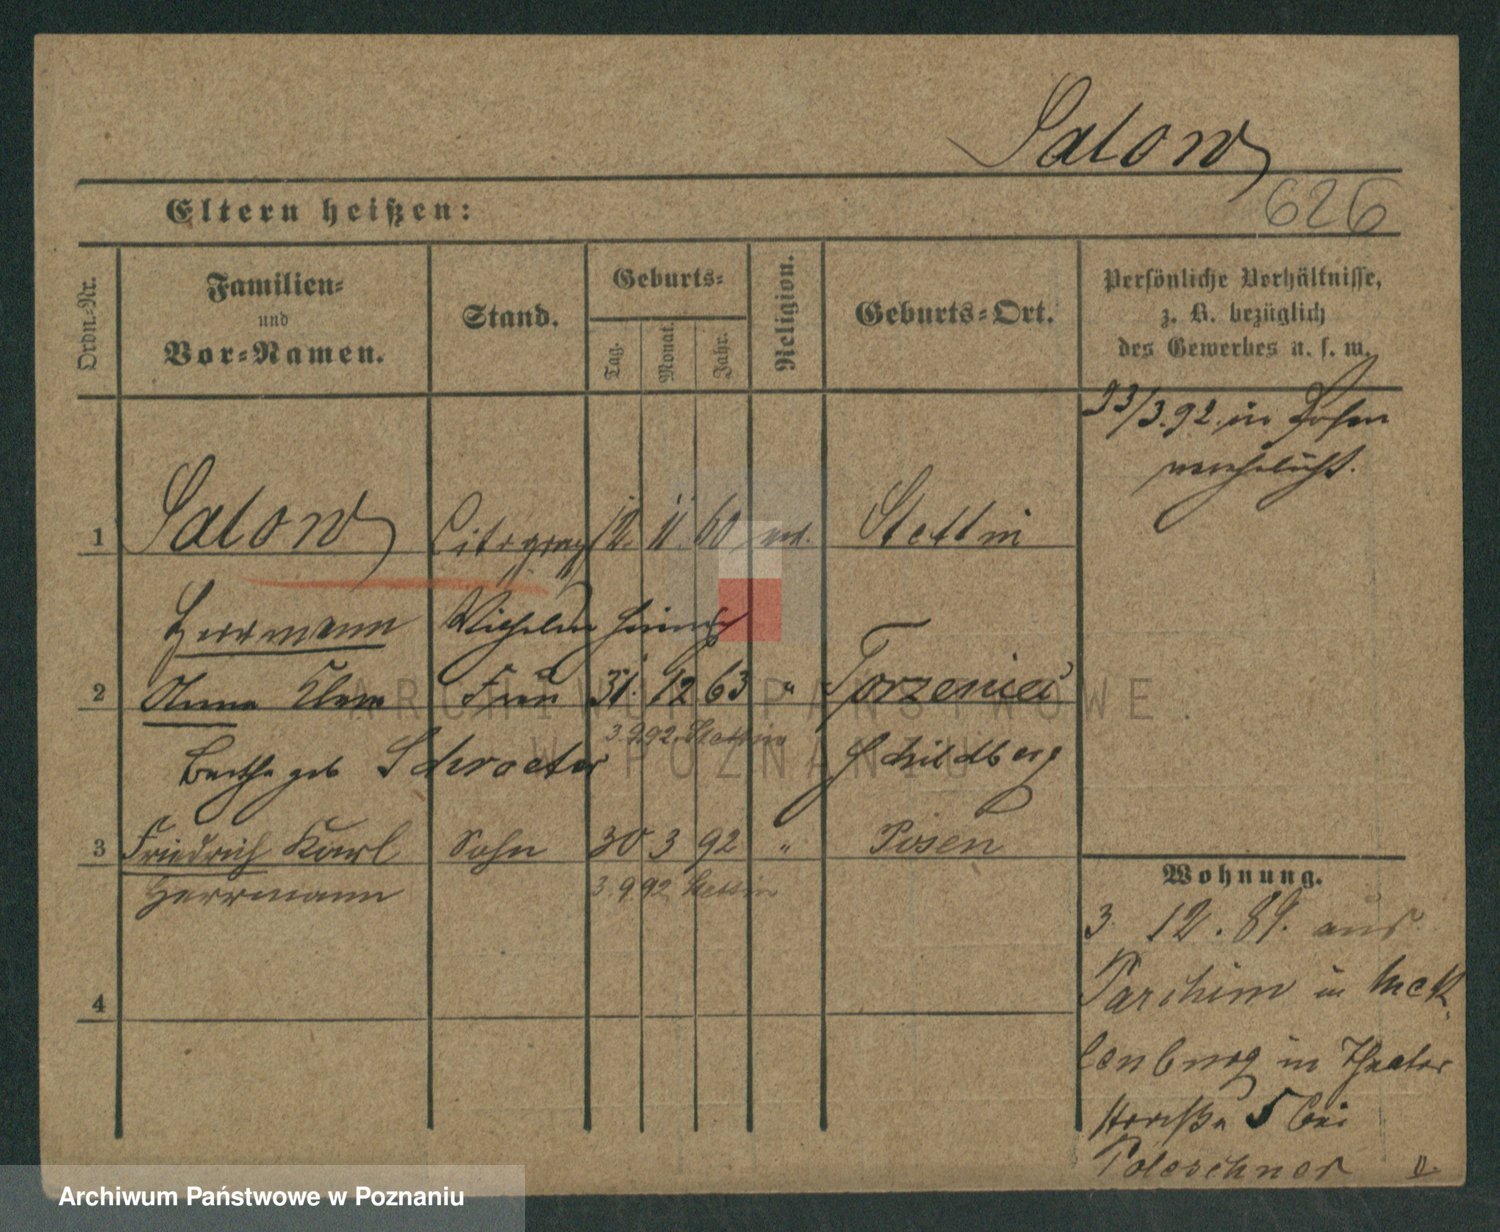 Salow
626
Eltern heißen:
Ordn.-Nr.
Familien-
und
Vor-Namen.
Stand.
Geburts-
Tag.
Monat.
Jahr.
Religion.
Geburts-Ort.
Persönliche Verhältnisse,
z. B. bezüglich
des Gewerbes u. s. w.
/3.92. in Posen
verehelicht.
1 Salow 12. 11. 60 Stettin
Herrmann Wilhelm Heinrich
2 Anna Frau 31. 12 63 "
3.9.92 Stettin
Bertha geb Schroeter Schildberg
3 Friedrich Karl Sohn 30 3 92 " Posen
Herrmann 3.9.92 Stettin
4
Wohnung.
3. 12. 89. aus
Parchim in Meck
lenburg in Theater
straße 5 bei
ARCHIWUM PAŃSTWOWE
W POZNANIU
Archiwum Państwowe w Poznaniu